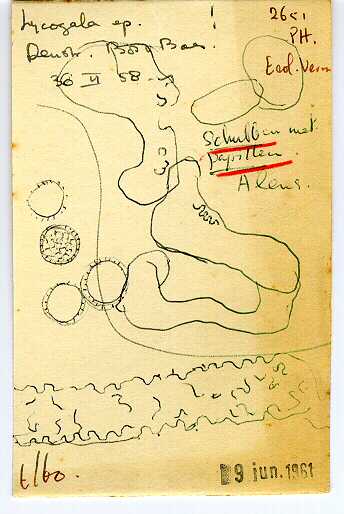 Lycogala ep.
Denstr.
30 VI 58
2651
PH.
Ecol. Verm
Schubben met
papillen.
Alens.
t/60.
9 jun. 1961